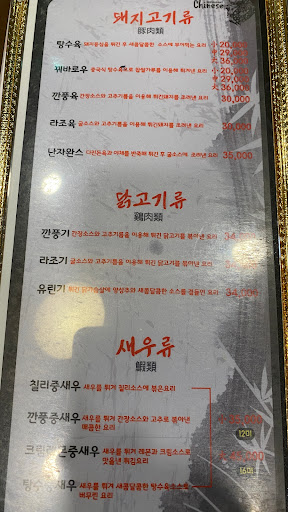 Chinese
돼지고기류
豚肉類
탕수육 돼지등심을 튀긴 후 새콤달콤한 소스에 부어먹는 요리 小 20,000
中 29,000
大 36,000
꿔바로우 중국식 탕수육으로 찹쌀가루를 이용해 튀겨낸 요리 小 20,000
中 29,000
大 36,000
깐풍육 간장소스와 고추기름을 이용해 튀긴돼지를 조려낸 요리 30,000
라조육 굴소스와 고추기름을 이용해 튀긴돼지를 조려낸 요리 30,000
난자완스 다진돈육과 야채를 반죽해 튀긴 후 굴소스에 조려낸 요리 35,000
닭고기류
鷄肉類
깐풍기 간장소스와 고추기름을 이용해 튀긴 닭고기를 볶아낸 요리
라조기 굴소스와 고추기름을 이용해 튀긴 닭고기를 조려낸 요리
유린기 튀긴 닭가슴살에 양상추와 새콤달콤한 소스를 곁들인 요리 34,000
새우류
鰕類
칠리중새우 새우를 튀겨 칠리소스에 볶은요리
깐풍중새우 새우를 튀겨 간장소스와 고추로 볶아낸
매콤한 요리
12미
크림 중새우 새우를 튀겨 레몬과 크림소스로
맛을낸 튀김요리
16미
탕수중새우 새우를 튀겨 새콤달콤한 탕수육소스로
버무린 요리